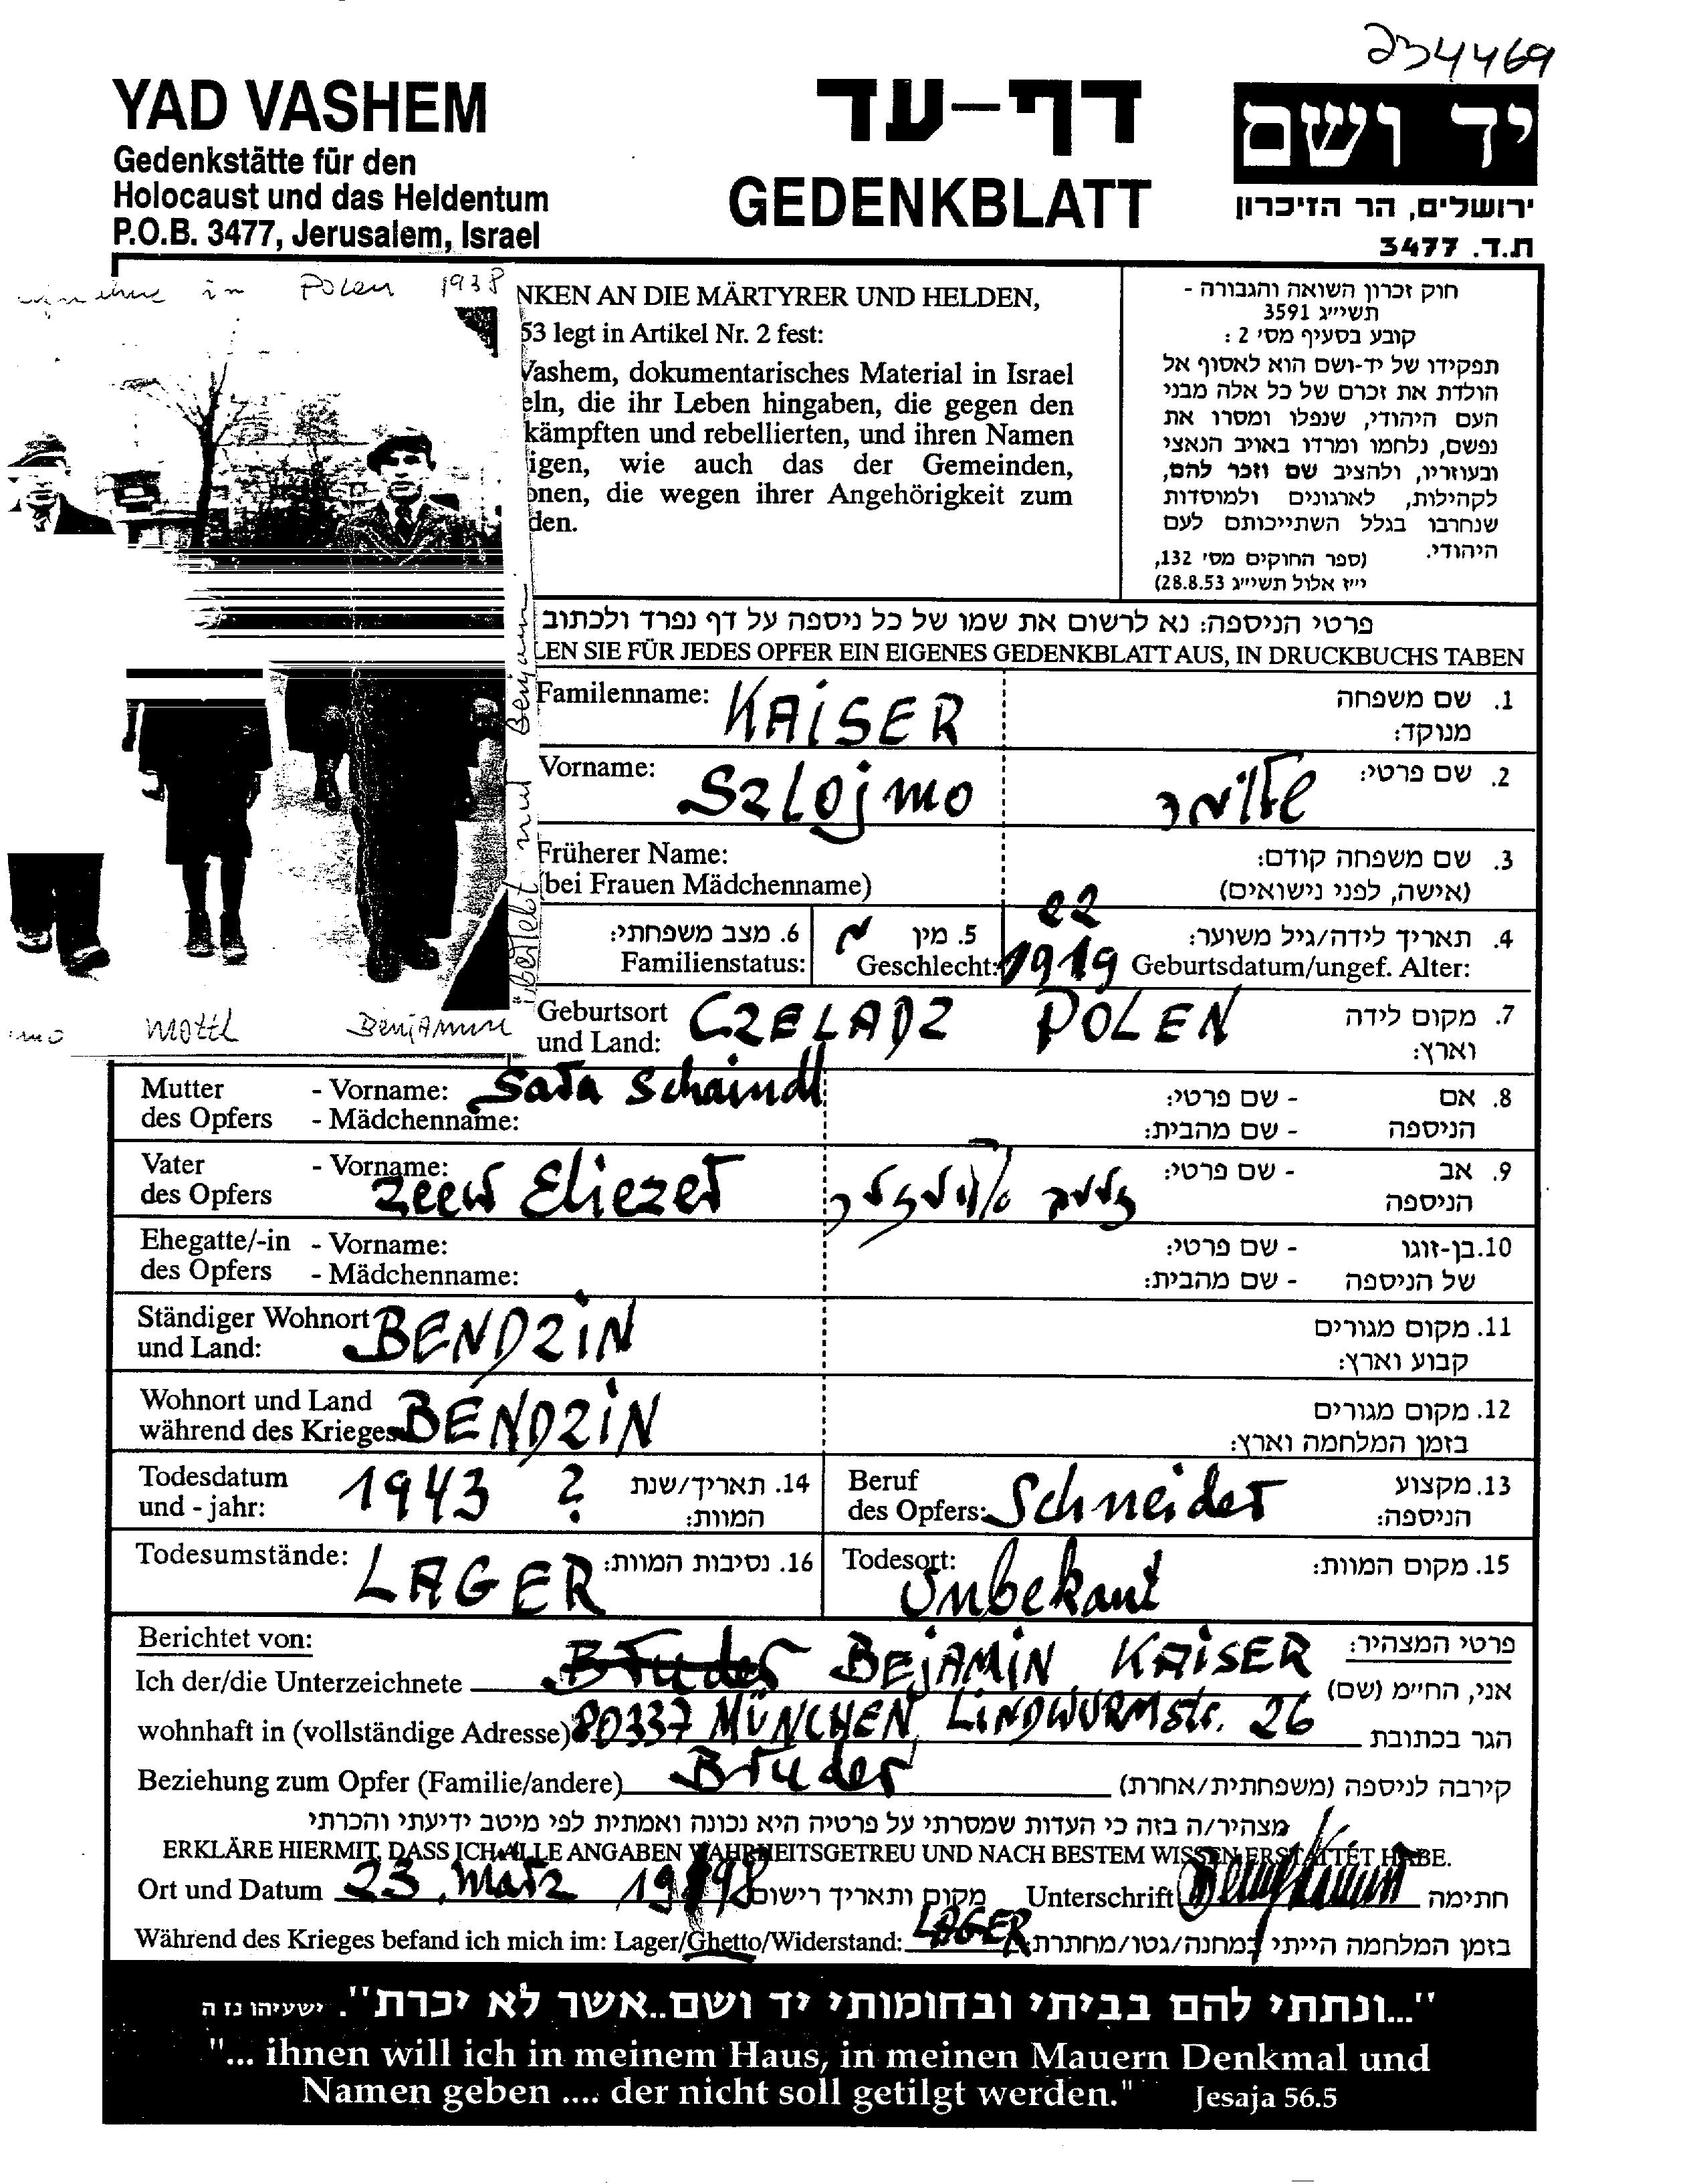 234469
YAD VASHEM
Gedenkstätte für den
Holocaust und das Heldentum
P.O.B. 3477, Jerusalem, Israel
דף-עד
GEDENKBLATT
יד ושם
ירושלים, הר הזיכרון
ת.ד. 3477
in Polen 1938
NKEN AN DIE MÄRTYRER UND HELDEN,
53 legt in Artikel Nr. 2 fest:
Vashem, dokumentarisches Material in Israel
eln, die ihr Leben hingaben, die gegen den
kämpften und rebellierten, und ihren Namen
igen, wie auch das der Gemeinden,
onen, die wegen ihrer Angehörigkeit zum
den.
חוק זכרון השואה והגבורה -
תשי״ג 3591
קובע בסעיף מס׳ 2 :
תפקידו של יד-ושם הוא לאסוף אל
הולדת את זכרם של כל אלה מבני
העם היהודי, שנפלו ומסרו את
נפשם, נלחמו ומרדו באויב הנאצי
ובעוזריו, ולהציב שם וזכר להם,
לקהילות, לארגונים ולמוסדות
שנחרבו בגלל השתייכותם לעם
היהודי.
(ספר החוקים מס׳ 132,
י״ז אלול תשי״ג 28.8.53)
פרטי הניספה: נא לרשום את שמו של כל ניספה על דף נפרד ולכתוב
LEN SIE FÜR JEDES OPFER EIN EIGENES GEDENKBLATT AUS, IN DRUCKBUCHS TABEN
überlebt nur Benjamin
Mottl Benjamin
Familenname: KAiSER 1. שם משפחה
מנוקד:
Vorname: Szlojmo שלומה 2. שם פרטי:
Früherer Name: 3. שם משפחה קודם:
(bei Frauen Mädchenname) (אישה, לפני נישואים)
6. מצב משפחתי: 5. מין 22 4. תאריך לידה/גיל משוער:
Familienstatus: Geschlecht: 1919 Geburtsdatum/ungef. Alter:
Geburtsort CZELADZ POLEN 7. מקום לידה
und Land: וארץ:
Mutter - Vorname: Sara Schaindl - שם פרטי: 8. אם
des Opfers - Mädchenname: - שם מהבית: הניספה
Vater - Vorname: Zeew Eliezer - שם פרטי: 9. אב
des Opfers הניספה
Ehegatte/-in - Vorname: - שם פרטי: 10. בן-זוגו
des Opfers - Mädchenname: - שם מהבית: של הניספה
Ständiger Wohnort BENDZiN 11. מקום מגורים
und Land: קבוע וארץ:
Wohnort und Land BENDZiN 12. מקום מגורים
während des Krieges בזמן המלחמה וארץ:
Todesdatum 1943 ? 14. תאריך/שנת Beruf Schneider 13. מקצוע
und - jahr: המוות: des Opfers: הניספה:
Todesumstände: LAGER 16. נסיבות המוות: Todesort: Unbekant 15. מקום המוות:
Berichtet von: פרטי המצהיר:
Ich der/die Unterzeichnete Bruder BEjAMiN KAiSER אני, החי״מ (שם)
wohnhaft in (vollständige Adresse) 80337 MÜNCHEN, LiNDWURMstr. 26 הגר בכתובת
Beziehung zum Opfer (Familie/andere) Bruder קירבה לניספה (משפחתית/אחרת)
מצהיר/ה בזה כי העדות שמסרתי על פרטיה היא נכונה ואמתית לפי מיטב ידיעתי והכרתי
ERKLÄRE HIERMIT, DASS ICH ALLE ANGABEN WAHRHEITSGETREU UND NACH BESTEM WISSEN ERSTATTET HABE.
Ort und Datum 23. März 1998 מקום ותאריך רישום Unterschrift חתימה
Während des Krieges befand ich mich im: Lager/Ghetto/Widerstand: LAGER בזמן המלחמה הייתי במחנה/גטו/מחתרת:
"...ונתתי להם בביתי ובחומותי יד ושם..אשר לא יכרת". ישעיהו נז ה
"... ihnen will ich in meinem Haus, in meinen Mauern Denkmal und
Namen geben .... der nicht soll getilgt werden." Jesaja 56.5